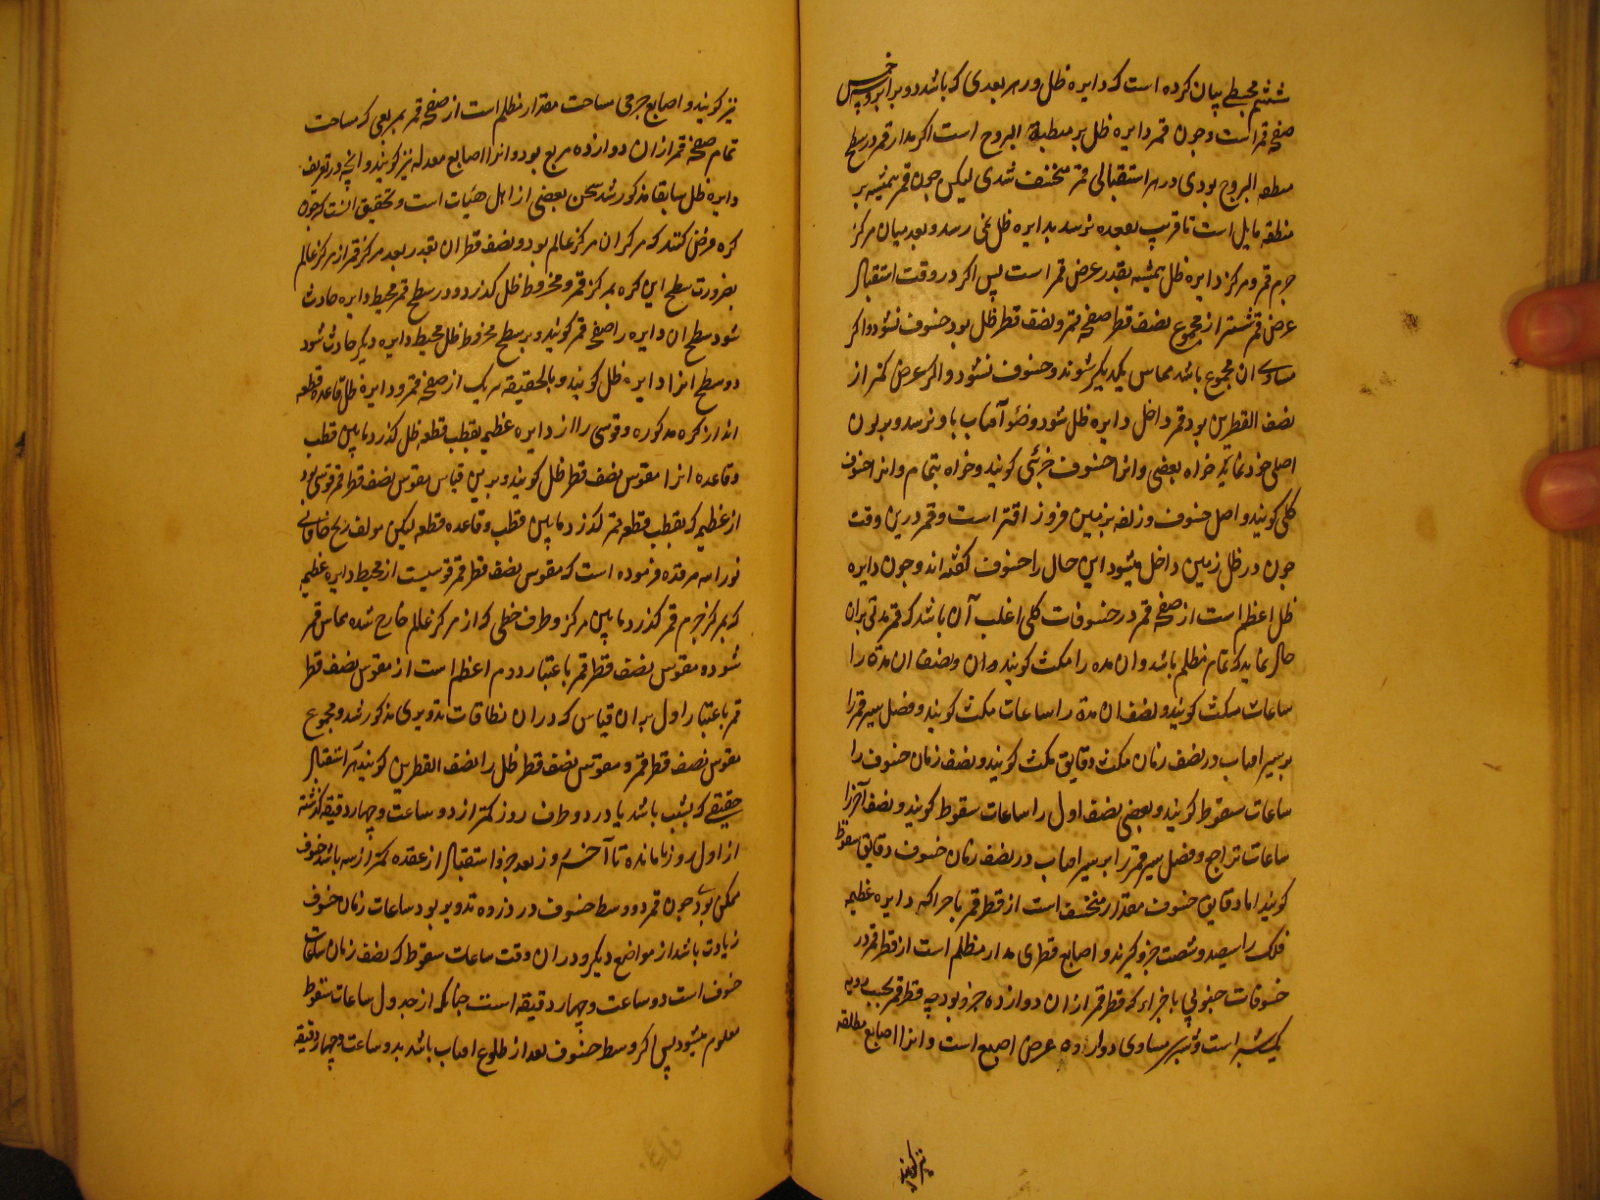 ششم مجسطی بیان کرده است که دایره ظل در هر بعدی که باشد دو برابر و خمس
صفحه قمر است و چون قمر دایره ظل بر منطقة البروج است اگر مدار قمر در سطح
منطقه البروج بودی در هر استقبالی قمر منخسف شدی لیکن چون قمر همیشه بر
منطقه مایل است تا قریب بعقده نرسد بدایره ظل نمی رسد و بعد میان مرکز
جرم قمر و مرکز دایره ظل همیشه بقدر عرض قمر است پس اگر در وقت استقبال
عرض قمر بیشتر از مجموع نصف قطر صفحه قمر و نصف قطر ظل بود خسوف نشود و اگر
مساوی ان مجموع باشد مماس یکدیگر شوند و خسوف نشود و اگر عرض کمتر از
نصف القطرین بود قمر داخل دایره ظل شود و ضو آفتاب باو نرسد و بر لون
اصلی خود نماید خواه بعضی و انرا خسوف جزئی کویند و خواه بتمام و انرا خسوف
کلی کویند و اصل خسوف در لغه بزمین فرو رفتن است و قمر درین وقت
چون در ظل زمین داخل میشود این حال را خسوف گفته اند و چون دایره
ظل اعظم است از صفحه قمر در خسوفات کلی اغلب آن باشد که قمر مدتی بران
حال بماند که تمام مظلم باشد و ان مده را مکث کویند و ان و نصف ان مدة را
ساعات مکث کویند و نصف ان مدة را ساعات مکث کویند و فضل سیر قمر را
بر سیر افتاب در نصف زمان مکث دقایق مکث کویند و نصف زمان خسوف را
ساعات سقوط کویند و بعضی نصف اول را ساعات سقوط کویند و نصف آخر را
ساعات تراجع و فضل سیر قمر را بر سیر افتاب در نصف زمان خسوف دقایق سقوط
کویند اما دقایق خسوف مقدار منخسف است از قطر قمر باجزا که دایره عظیمه
فلک را سیصد و شصت جزو کیرند و اصابع قطری مدار مظلم است از قطر قمر در
خسوفات جنوبی باجزاء که قطر قمر ازان دوازده جزو بود چه قطر قمر بحسب رویه
یک شبر است و شبر مساوی دوازده عرض اصبع است و انرا اصابع مطلقه
نیز کویند
نیز کویند و اصابع جرمی مساحت مقدار مظلم است از صفحه قمر بمربعی که مساحت
تمام صفحه قمر ازان دوازده مربع بود و انرا اصابع معدله نیز کویند و انچه در تعریف
دایره ظل سابقا مذکور شد سخن بعضی از اهل هیات است و تحقیق انست که چون
کره فرض کنند که مرکز ان مرکز عالم بود و نصف قطر ان بقدر بعد مرکز قمر از مرکز عالم
بضرورت سطح این کره بمرکز قمر و مخروط ظل گذرد و در سطح قمر محیط دایره حادث
شود سطح ان دایره را صفحه قمر کویند و بر سطح مخروط ظل محیط دایره دیگر حادث شود
و سطح انرا دایره ظل کویند و بالحقیقه هر یک از صفحه قمر و دایره ظل قاعده قطعه
اند از کره مذکوره و قوسی را از دایره عظیمه بقطب قطعه ظل گذرد مابین قطب
و قاعده انرا مقوس نصف قطر ظل کویند و برین قیاس مقوس نصف قطر قمر قوسی بود
از عظیمه که بقطب قطعه قمر گذرد مابین قطب و قاعده قطعه لیکن مولف زیج خاقانی
نور الله مرقده فرموده است که مقوس نصف قطر قمر قوسیست از محیط دایره عظیمه
که بمرکز جرم قمر گذرد مابین مرکز و طرف خطی که از مرکز عالم خارج شده مماس قمر
شود و مقوس نصف قطر قمر باعتبار دوم اعظم است از مقوس نصف قطر
قمر باعتبار اول بران قیاس که دران نطاقات تدویری مذکور شد و مجموع
مقوس نصف قطر قمر و مقوس نصف قطر ظل را نصف القطرین کویند هر استقبال
حقیقی که بشب باشد یا در دو طرف روز کمتر از دو ساعت و چهار دقیقه گذشته
از اول روز یا مانده تا آخر روز بعد جزو استقبال از عقده کمتر از سه باشد خسوف
ممکن بود چون قمر در وسط خسوف در ذروه تدویر بود ساعات زمان خسوف
زیادت باشد از مواضع دیگر و دران وقت ساعات سقوط که نصف زمان ساعات
خسوف است دو ساعت و چهار دقیقه است چنانکه از جدول ساعات سقوط
معلوم میشود پس اگر وسط خسوف بعد از طلوع افتاب باشد بدو ساعت و چهار دقیقه